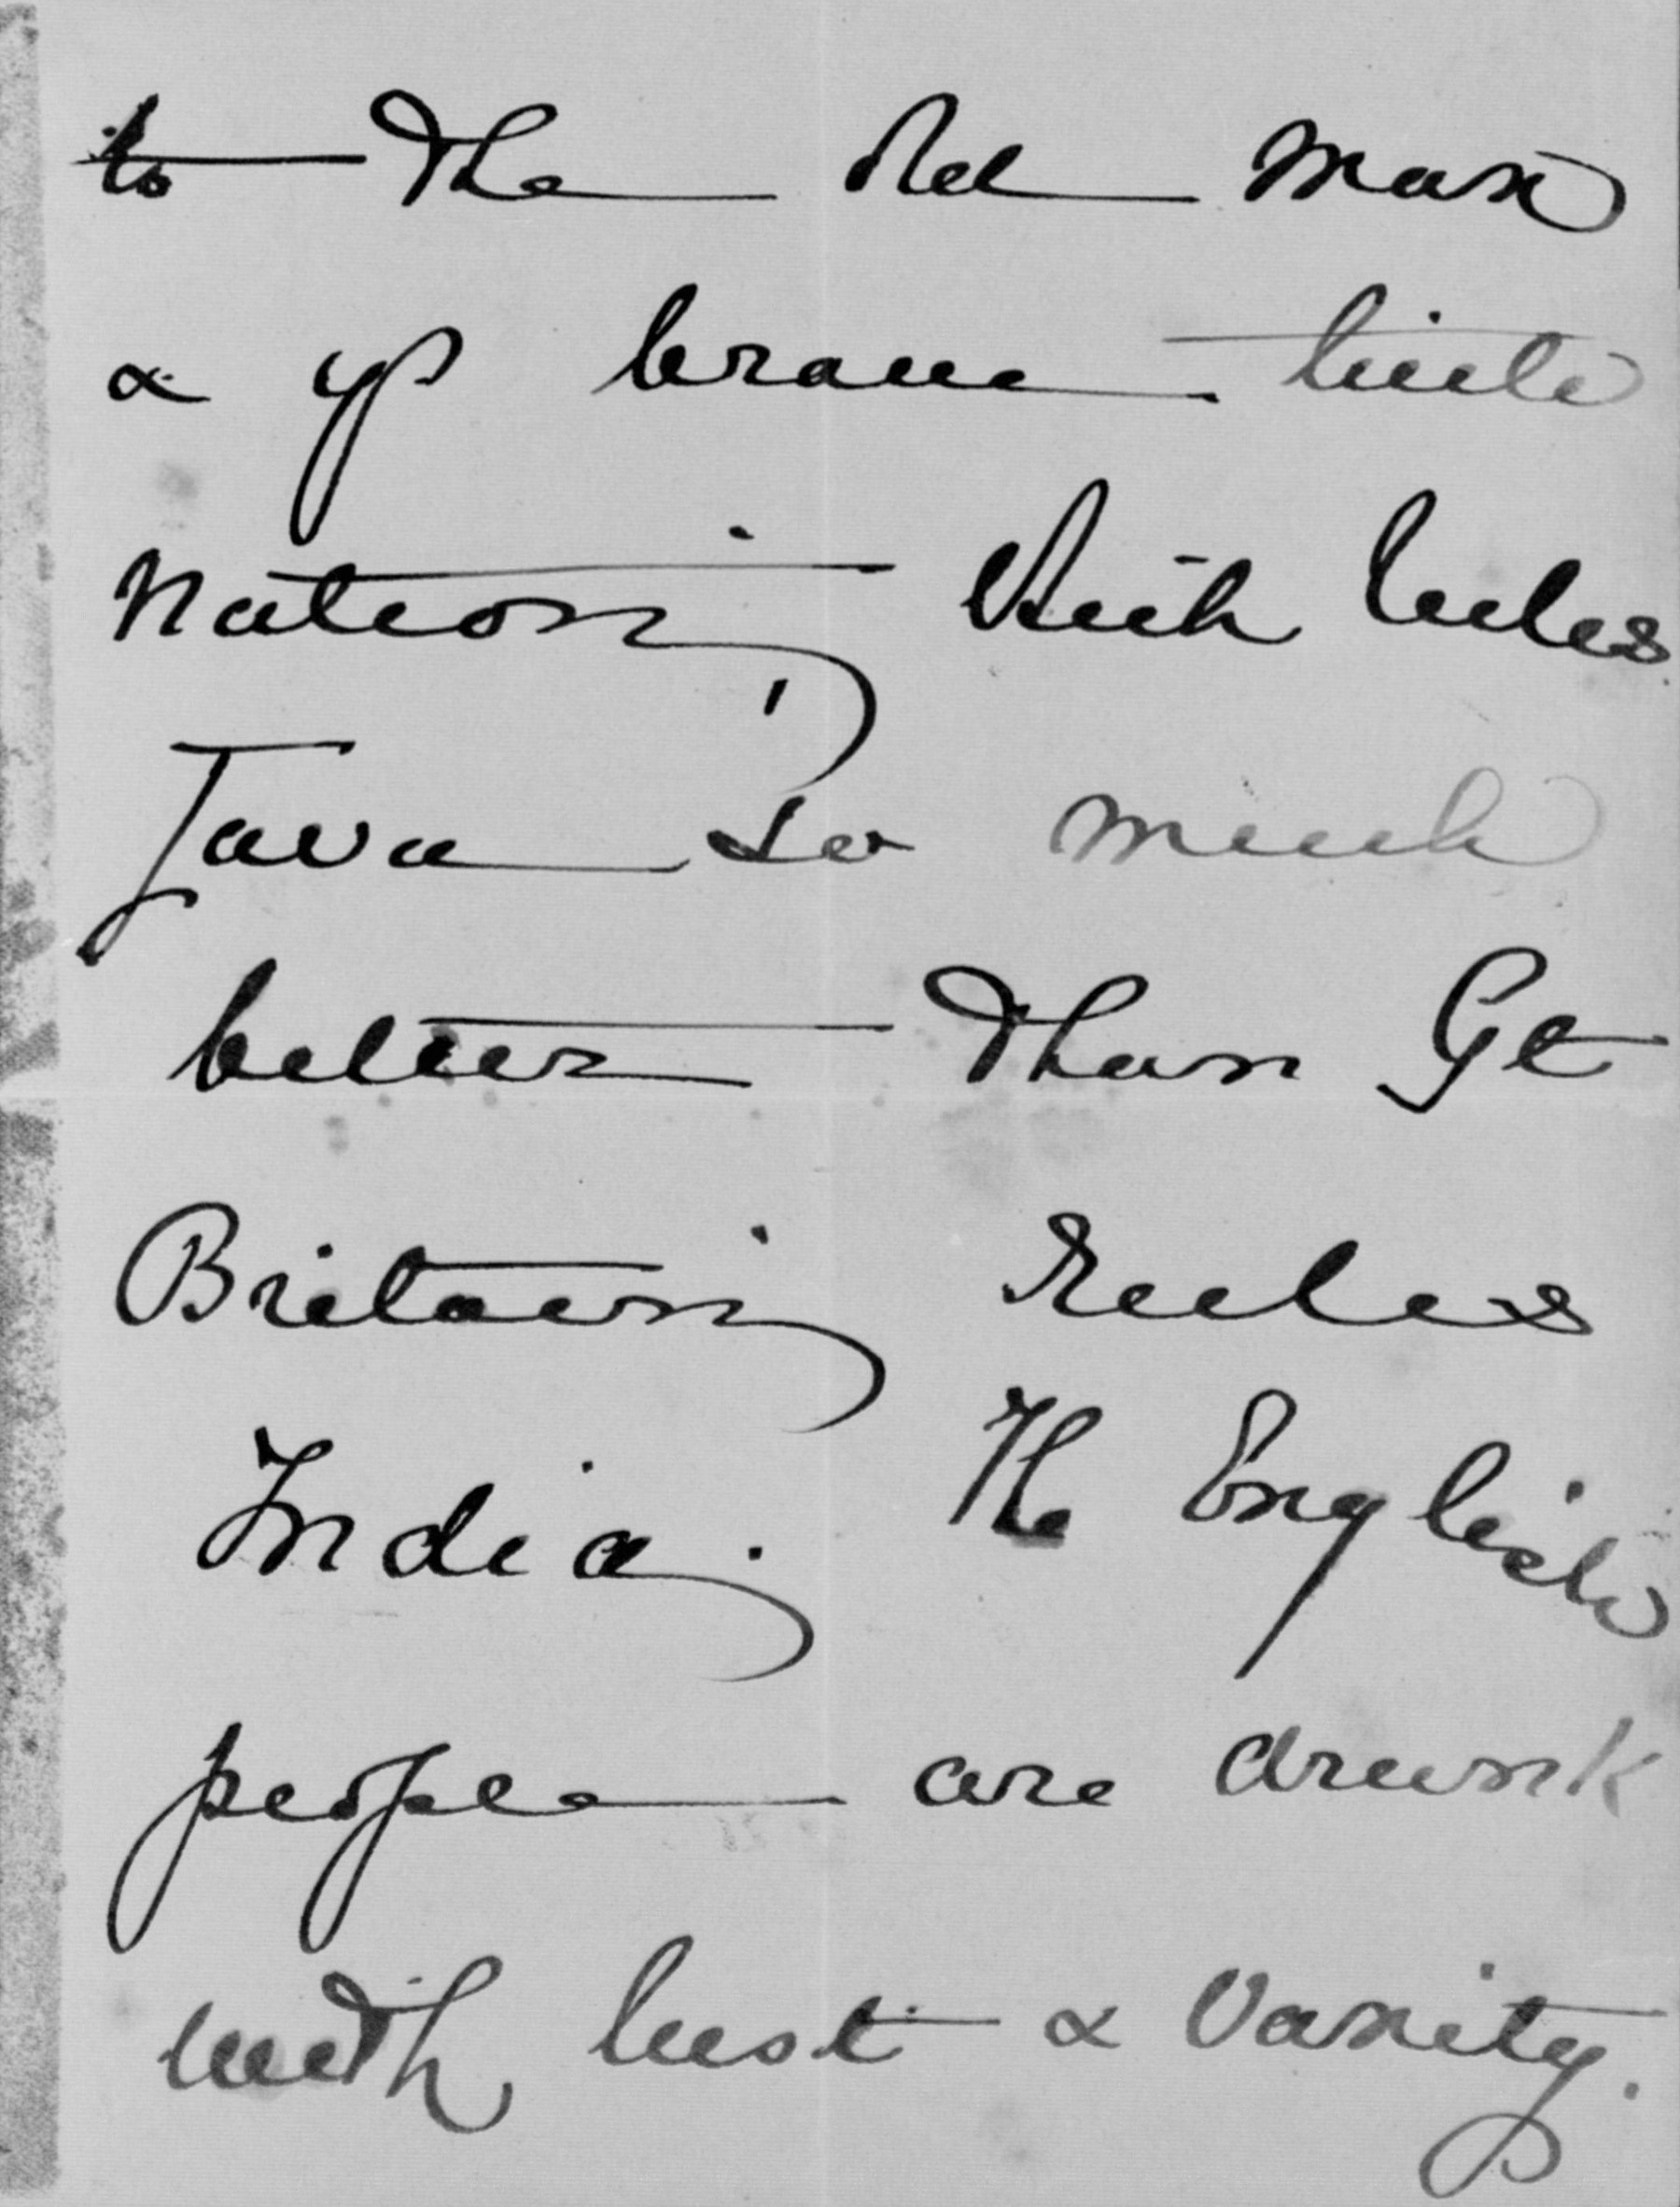 to the Old Man
& yr brave little
Nation, Which rules
Java so much
better than Gt
Britain Rules
India. The English
people are drunk
with lust & Vanity.